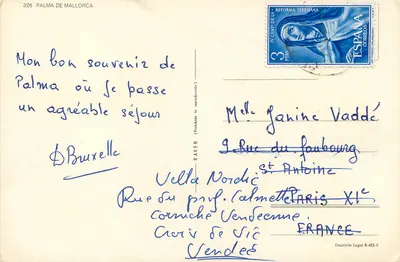 326 PALMA DE MALLORCA
Mon bon souvenir de
Palma où je passe
un agréable séjour
D Bruxelle
IV CENT. DE LA REFORMA TERESIANA
3
PTAS
ESPAÑA
CORREOS
Melle Janine Vaddé
9 Rue du faubourg
St Antoine
PARIS XIe
FRANCE
Villa Nordic
Rue du prof. Calmette
Corniche Vendéenne
Croix de Vic
Vendée
Depósito Legal B.